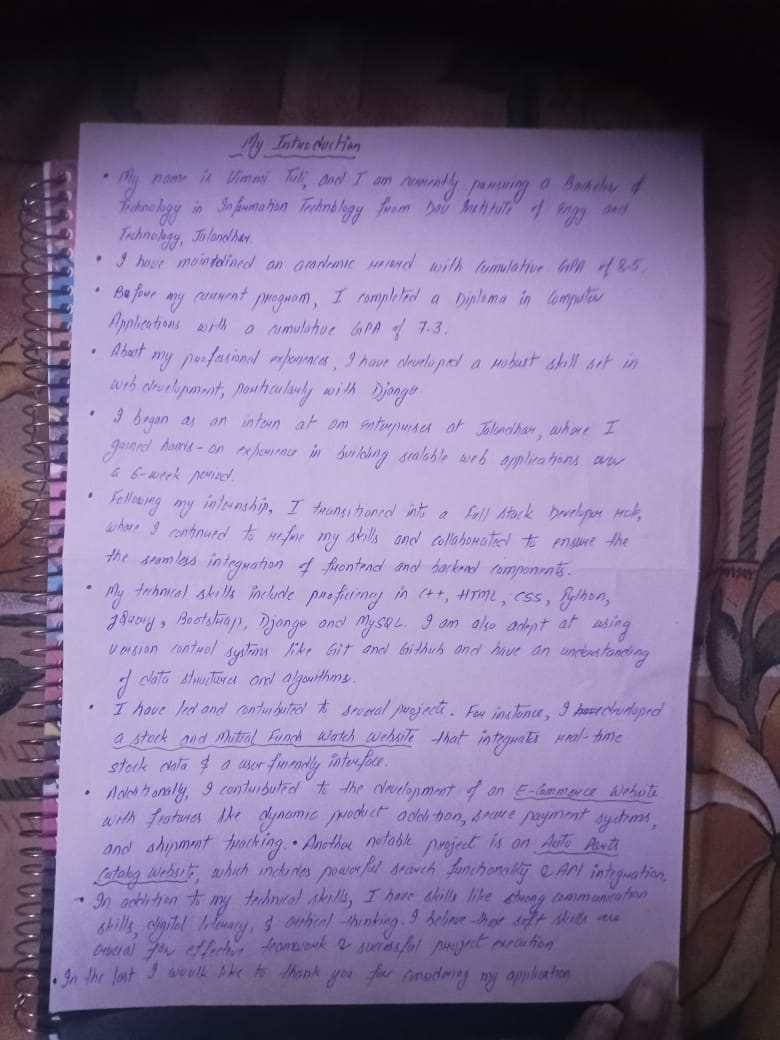 My Introduction
• My name is Vimmi Tuli, and I am currently pursuing a Bachelor of
Technology in Information Technology from Dav Institute of Engg and
Technology, Jalandhar
• I have maintained an academic record with Cumulative GPA of 8.5.
• Before my current program, I completed a Diploma in Computer
Applications with a cumulative GPA of 7.3.
• About my professional experiences, I have developed a robust skill set in
web development, particularly with Django
• I began as an intern at Om Enterprises at Jalandhar, where I
gained hands-on experience in building scalable web applications over
a 6-week period.
• Following my internship, I transitioned into a Full Stack Developer role,
where I continued to refine my skills and collaborated to ensure the
the seamless integration of frontend and backend components.
• My technical skills include proficiency in C++, HTML, CSS, Python,
jQuery, Bootstrap, Django and MySQL. I am also adept at using
version control systems like Git and Github and have an understanding
of data structures and algorithms.
• I have led and contributed to several projects. For instance, I developed
a stock and Mutual Funds Watch Website that integrates real-time
stock data & a user friendly interface.
• Additionally, I contributed to the development of an E-Commerce Website
with features like dynamic product addition, secure payment systems,
and shipment tracking. • Another notable project is an Auto Parts
Catalog Website, which includes powerful search functionality & API integration.
• In addition to my technical skills, I have skills like strong communication
skills, digital literacy, & critical thinking. I believe these soft skills are
crucial for effective teamwork & successful project execution
• In the last I would like to thank you for considering my application